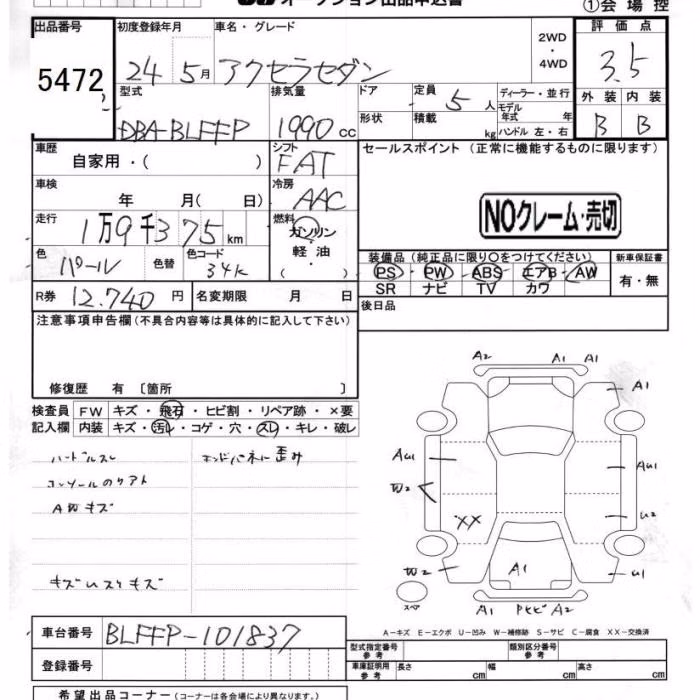 オークション出品申込書
①会場控
出品番号 初度登録年月 車名・グレード 2WD・4WD 評価点
5472 24年5月 アクセラセダン 3.5
型式 排気量 ドア 定員 ディーラー・並行 外装 内装
DBA-BLFFP 1990cc 5人 モデル年式 年 B B
形状 積載 kg ハンドル 左・右
車歴 シフト セールスポイント(正常に機能するものに限ります)
自家用・( ) FAT
車検 冷房
年 月( 日) AAC
NOクレーム・売切
走行 燃料
1万9千375km ガソリン
軽油
・( )
色 色替 色コード 装備品(純正品に限り○をつけてください) 新車保証書
パール 34K PS・PW・ABS・エアB・AW 有・無
SR ナビ TV カワ
R券 12.740円 名変期限 月 日 後日品
注意事項申告欄(不具合内容等は具体的に記入して下さい)
修復歴 有 〔箇所 〕
検査員 FW キズ・飛石・ヒビ割・リペア跡・×要
記入欄 内装 キズ・汚れ・コゲ・穴・スレ・キレ・破レ
ハンドルスレ エンドパネに歪み
コンソールのリアト
A内キズ
キズ
A2 A1 A1
A1
AU1 AU1
W2 U2
XX
W2 A1 U1
スペア
A1 A2
A-キズ E-エクボ U-凹み W-補修跡 S-サビ C-腐食 XX-交換済
車台番号 BLFFP-101837
型式指定番号 参考 類別区分番号 参考
登録番号 車庫証明用 参考 長さ cm 幅 cm 高さ cm
希望出品コーナー(コーナーは各会場により異なります。)